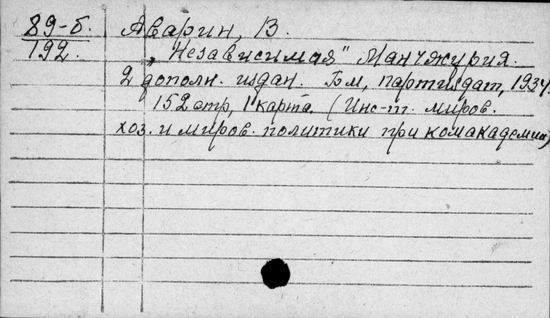 89-б. Аварин, В.
192. „Независимая" Манчжурия.
2 дополн. издан. Бм, партиздат, 1934.
152 стр, 1 карта. (Инс-т. миров.
хоз. и миров. политики при комакадемии)